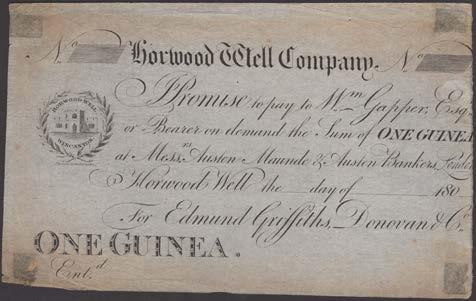 No Horwood Well Company. No
HORWOOD WELL
WINCANTON
Promise to pay to Wm Gapper, Esq
or Bearer on demand the Sum of ONE GUINEA
at Messrs Austen Maunde & Austen Bankers, London
Horwood Well the day of 180
For Edmund Griffiths, Donovan & Co
ONE GUINEA.
Entd